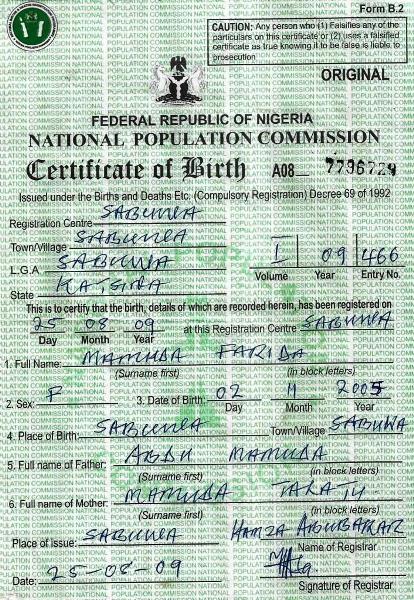 Form B.2
CAUTION: Any person who (1) Falsifies any of the
particulars on this certificate or (2) uses a falsified
certificate as true knowing it to be false is liable to
prosecution
ORIGINAL
FEDERAL REPUBLIC OF NIGERIA
NATIONAL POPULATION COMMISSION
Certificate of Birth A08 7796729
Issued under the Births and Deaths Etc. (Compulsory Registration) Decree 69 of 1992
Registration Centre SABUWA
Town/Village SABUWA
L.G.A SABUWA I 09 466
Volume Year Entry No.
State KATSINA
This is to certify that the birth, details of which are recorded herein, has been registered on
25 08 09 at this Registration Centre SABUWA
Day Month Year
1. Full Name: MAMUDA FARIDA
(Surname first) (in block letters)
2. Sex: F 3. Date of Birth: 02 11 2005
Day Month Year
4. Place of Birth: SABUWA Town/Village SABUWA
5. Full name of Father: ABDU MAMUDA
(Surname first) (in block letters)
6. Full name of Mother: MAMUDA TARATU
(Surname first) (in block letters)
Place of issue: SABUWA HAMZA ABUBAKAR
Name of Registrar
Date: 25-08-09
Signature of Registrar